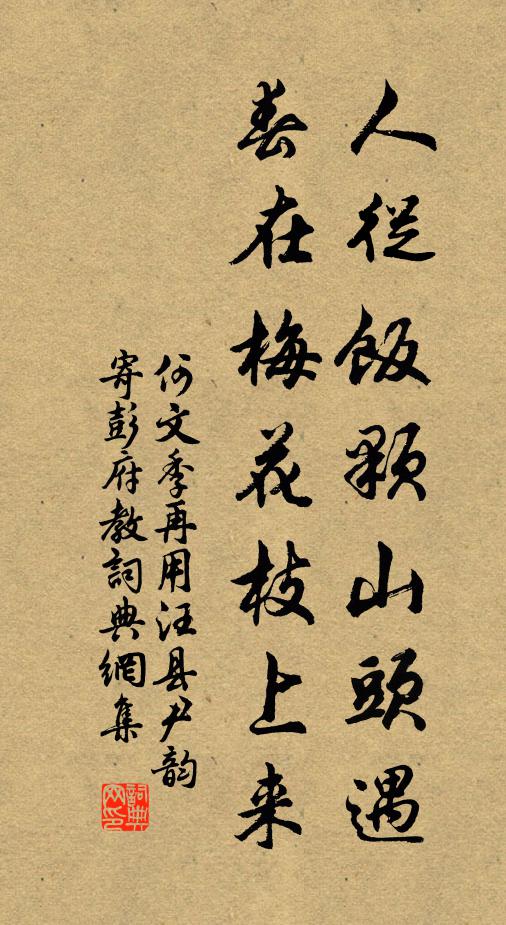 人從飯顆山頭遇
春在梅花枝上来
何文季再用汪县尹韵
寄彭府教詞典網集
詞典网印